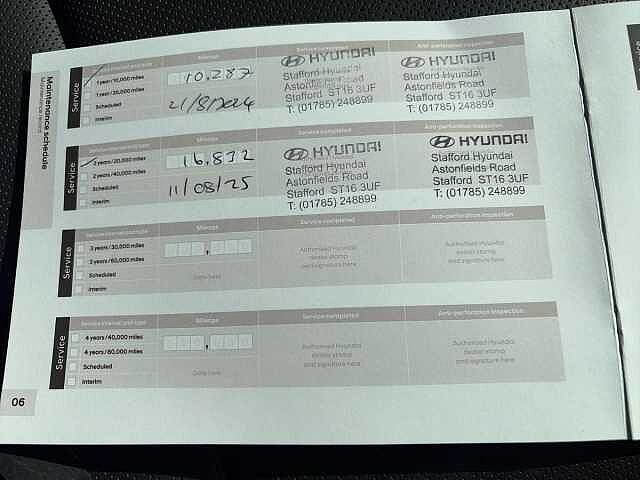 Maintenance schedule
Maintenance record
Service
Service interval and type
Mileage
Service completed
Anti-perforation inspection
1 year/10,000 miles
1 year/20,000 miles
Scheduled
Interim
10,287
21/8/2024
HYUNDAI
Stafford Hyundai
Astonfields Road
Stafford ST16 3UF
T: (01785) 248899
HYUNDAI
Stafford Hyundai
Astonfields Road
Stafford ST16 3UF
T: (01785) 248899
Service
Service interval and type
Mileage
Service completed
Anti-perforation inspection
2 years/20,000 miles
2 years/40,000 miles
Scheduled
Interim
16,832
11/08/25
HYUNDAI
Stafford Hyundai
Astonfields Road
Stafford ST16 3UF
T: (01785) 248899
HYUNDAI
Stafford Hyundai
Astonfields Road
Stafford ST16 3UF
T: (01785) 248899
Service
Service interval and type
Mileage
Service completed
Anti-perforation inspection
3 years/30,000 miles
3 years/60,000 miles
Scheduled
Interim
Date here
Authorised Hyundai
dealer stamp
and signature here
Authorised Hyundai
dealer stamp
and signature here
Service
Service interval and type
Mileage
Service completed
Anti-perforation inspection
4 years/40,000 miles
4 years/80,000 miles
Scheduled
Interim
Date here
Authorised Hyundai
dealer stamp
and signature here
Authorised Hyundai
dealer stamp
and signature here
06